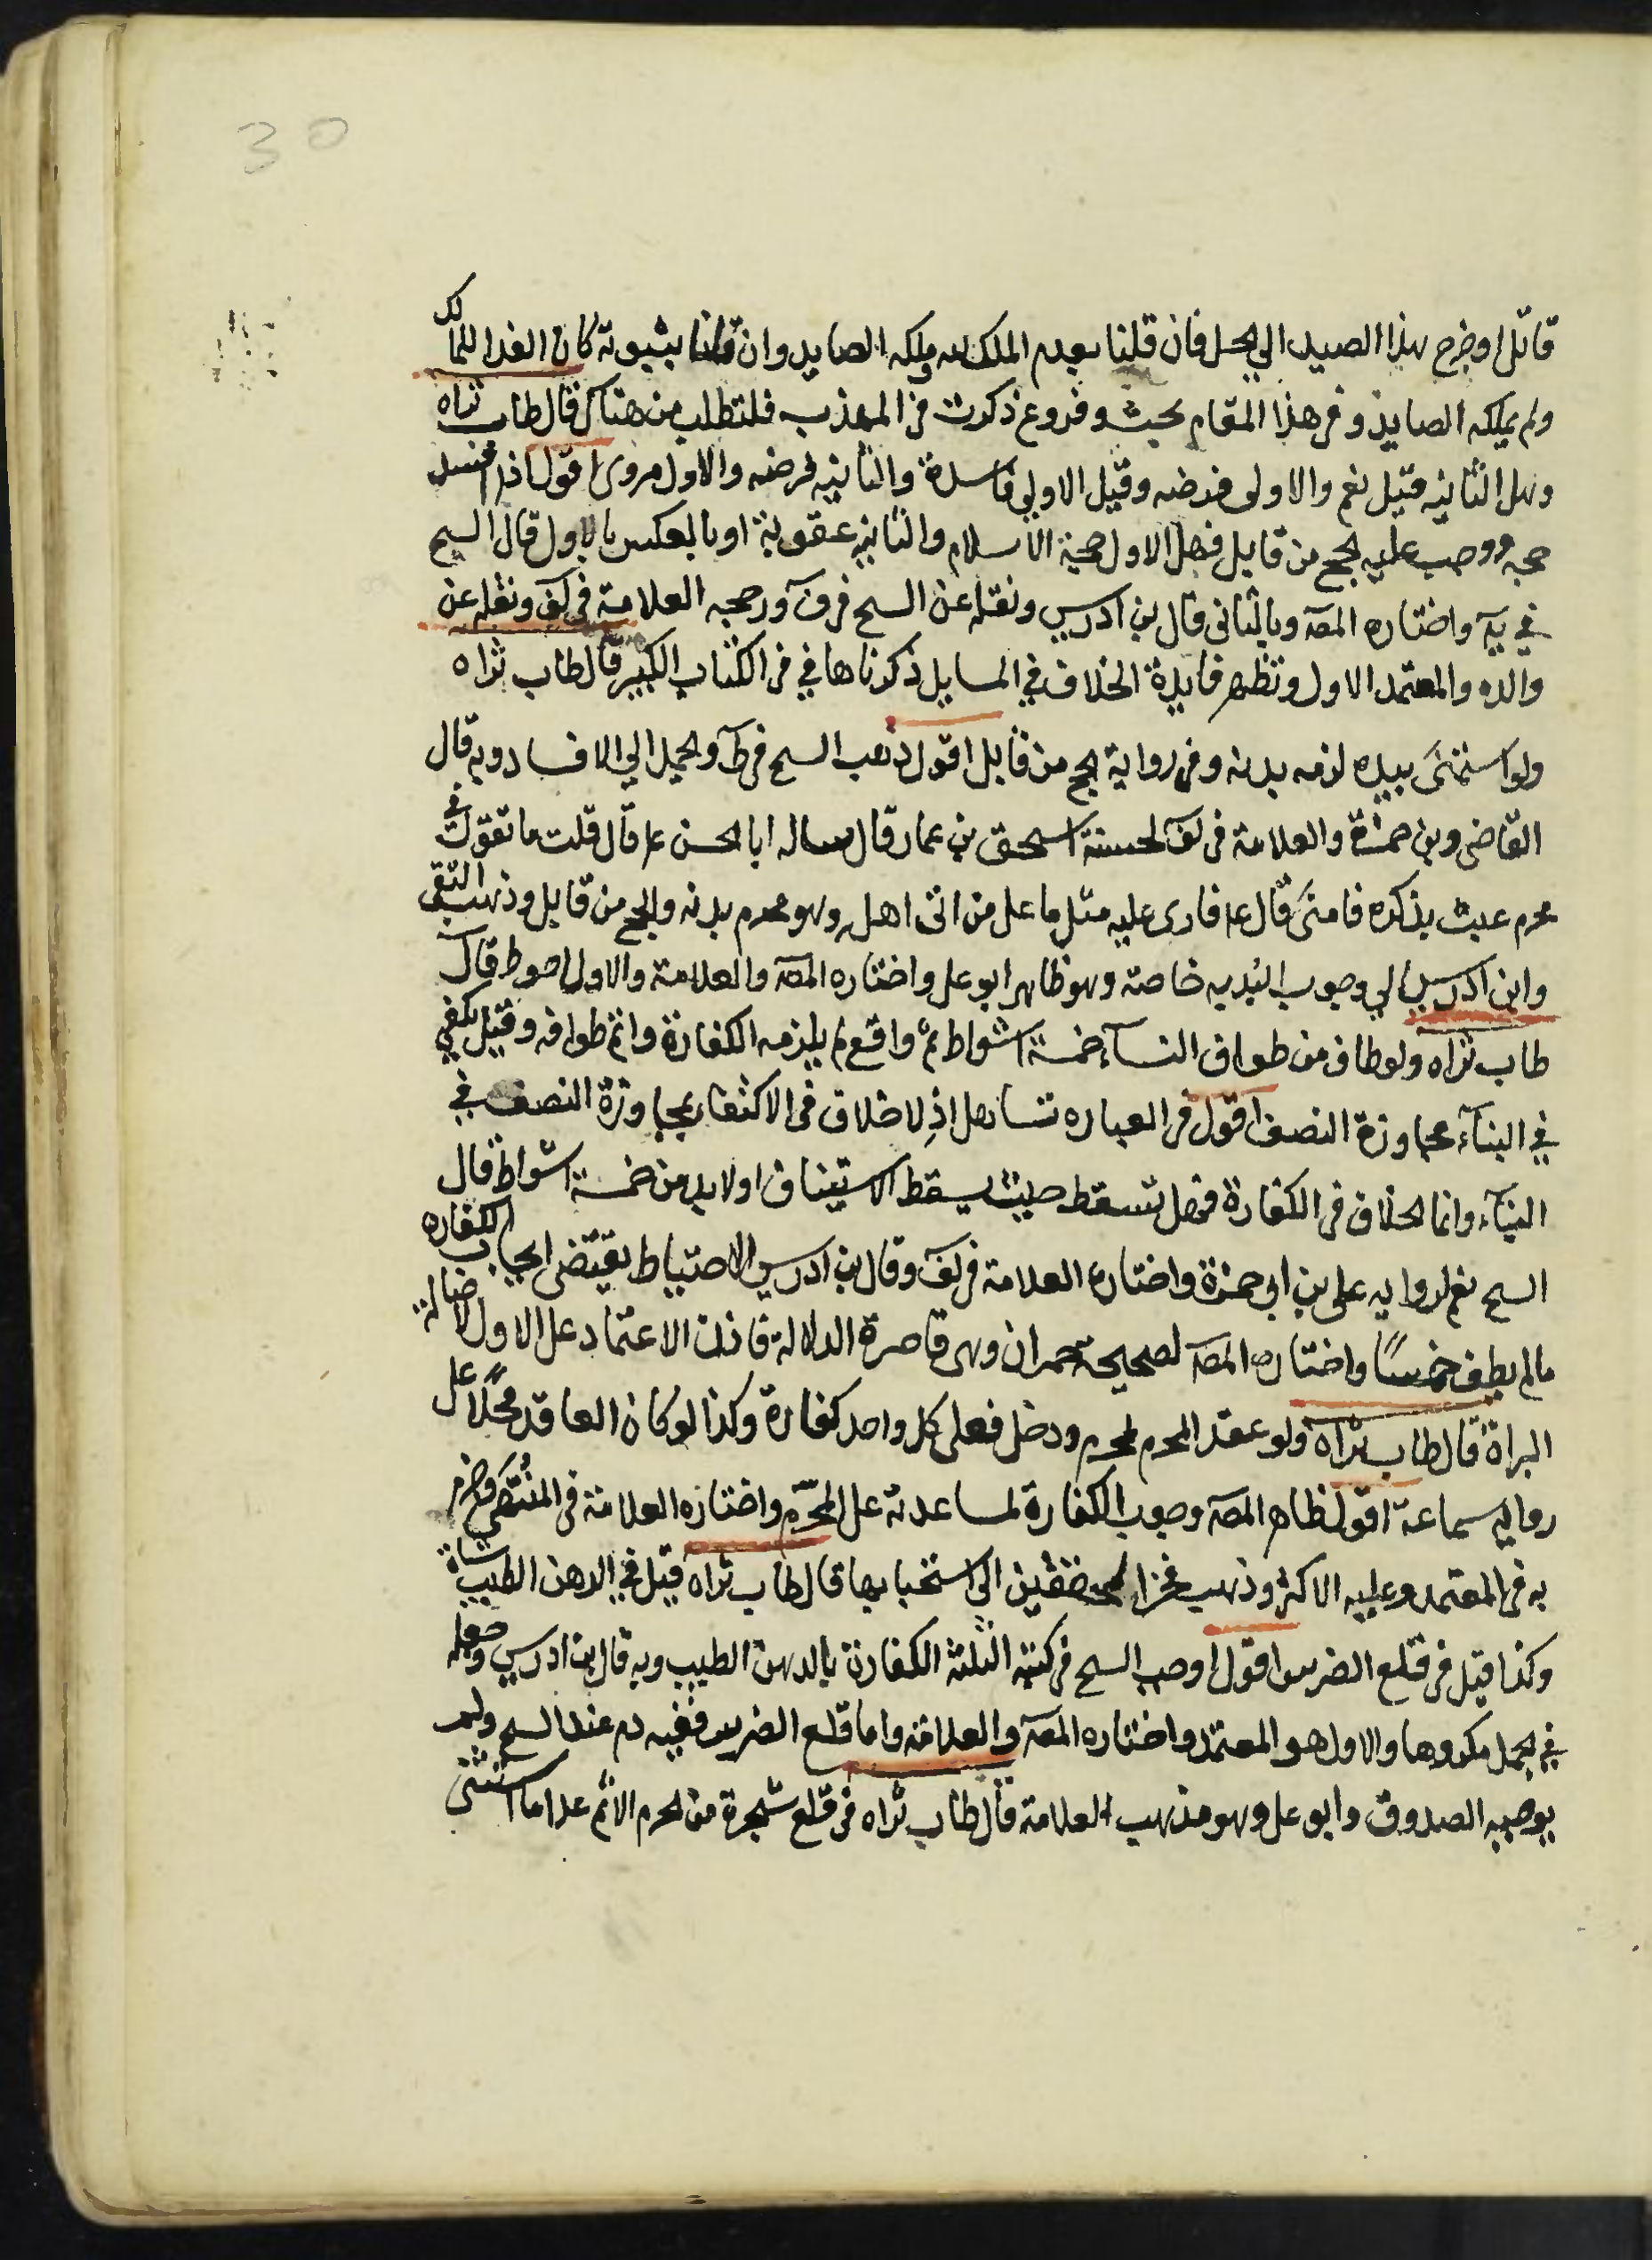 30
قاتل او خرج بهذا الصيد الي الحل فان قلنا بعدم الملك لله وملكه الصايد وان قلنا بثبوته كان الفدا للمالك
ولم يملكه الصايد وفي هذا المقام بحث وفروع ذكرت في المهذب فلتطلب من هناك قال طاب ثراه
وهل الثانيه قيل نعم والاولى فرضه وقيل الاولي فاسدة والثانيه فرضه والاول مروى اقول اذا افسد
حجه ووجب عليه الحج من قابل فهل الاول حجة الاسلام والثانيه عقوبة او بالعكس بالاول قال الشيخ
في يه واختاره المصه وبالثاني قال بن ادريس ونقله عن الشيخ في ف ورجحه العلامة في لف ونقله عن
والده والمعتمد الاول وتظهر فايدة الخلاف في المسايل ذكرناها في في الكتاب الكبير قال طاب ثراه
ولو استمنى بيده لزمه بدنه وفي رواية يحج من قابل اقول ذهب الشيخ في ط والجمل الي الافساد وبه قال
القاضي وبن حمزة والعلامة في لف لحسنة اسحق بن عمار قال ساله ابا الحسن ع قال قلت ما تقول في
محرم عبث بذكره فامنى قال ع ارى عليه مثل ما على من اتى اهله وهو محرم بدنه والحج من قابل وذهب التقى
وابن ادريس الي وجوب البدنه خاصة وهو ظاهر ابو على واختاره المصه والعلامة والاول احوط قال
طاب ثراه ولو طاف من طواف النسآء خمسة اشواط ثم واقع لم يلزمه الكفارة واتم طوافه وقيل يكفي
في البنآء مجاوزة النصف اقول في العباره تساهل اذ لا خلاف في الاكتفاء بمجاوزة النصف في
البنآء وانما الخلاف في الكفارة فهل تسقط حيث يسقط الاستيناف او لابد من خمسة اشواط قال
الشيخ نعم لروايه على بن ابي حمزة واختاره العلامة في لف وقال بن ادريس الاحتياط يقتضى ايجاب الكفاره
ما لم يطف خمسًا واختاره المصه لصحيحة حمران وهى قاصرة الدلالة فاذن الاعتماد على الاول لاصالة
البراة قال طاب ثراه ولو عقد المحرم لمحرم ودخل فعلى كل واحد كفارة وكذا لو كان العاقد محلًا على
رواية سماعة اقول ظاهر المصه وجوب الكفارة لمساعدته على المحرّم واختاره العلامة في المنتهى وجزم
به في المعتمد وعليه الاكثر وذهب فخر المحققين الى استحبابها قال طاب ثراه قيل في الدهن الطيب شاة
وكذا قيل في قلع الضرس اقول اوجب الشيخ في كتبه الثلثة الكفارة بالدهن الطيب وبه قال بن ادريس وجعله
في الجمل مكروها والاول هو المعتمد واختاره المصه والعلامة واما قلع الضرس ففيه دم عند الشيخ ولم
يوجبه الصدوق وابو على وهو مذهب العلامة قال طاب ثراه في قلع شجرة من الحرم الاثم عدا ما استثنى